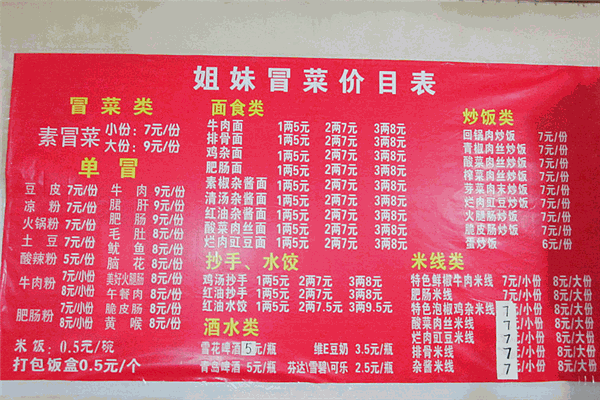 姐妹冒菜价目表
冒菜类
素冒菜 小份：7元/份
大份：9元/份
单冒
豆皮 7元/份 牛肉 9元/份
凉粉 7元/份 腊肝 9元/份
火锅粉 7元/份 肥肠 9元/份
土豆 7元/份 毛肚 8元/份
酸辣粉 5元/份 鱿鱼 8元/份
牛肉粉 7元/小份 8元/小份 脑花 8元/份
美好火腿肠 8元/份
午餐肉 8元/份
肥肠粉 7元/小份 8元/小份 脆皮肠 8元/份
黄喉 8元/份
米饭：0.5元/碗
打包饭盒0.5元/个
面食类
牛肉面 1两5元 2两7元 3两8元
排骨面 1两5元 2两7元 3两8元
鸡杂面 1两5元 2两7元 3两8元
肥肠面 1两5元 2两7元 3两8元
素椒杂酱面 1两5元 2两7元 3两8元
清汤杂酱面 1两5元 2两7元 3两8元
红油杂酱面 1两5元 2两7元 3两8元
酸菜肉丝面 1两5元 2两7元 3两8元
烂肉豇豆面 1两5元 2两7元 3两8元
抄手、水饺
鸡汤抄手 1两5元 2两7元 3两8元
红油抄手 1两5元 2两7元 3两8元
红油水饺 1两5元 2两7.5元 3两9.5元
酒水类
雪花啤酒 5元/瓶 维E豆奶 3.5元/瓶
青岛啤酒 5元/瓶 芬达\雪碧\可乐 2.5元/瓶
炒饭类
回锅肉炒饭 7元/份
青椒肉丝炒饭 7元/份
酸菜肉丝炒饭 7元/份
榨菜肉丝炒饭 7元/份
芽菜肉末炒饭 7元/份
烂肉豇豆炒饭 7元/份
火腿肠炒饭 7元/份
脆皮肠炒饭 7元/份
蛋炒饭 6元/份
米线类
特色鲜椒牛肉米线 7元/小份 8元/大份
肥肠米线 7元/小份 8元/大份
特色泡椒鸡杂米线 7元/小份 8元/大份
酸菜肉丝米线 7元/小份 8元/大份
烂肉豇豆米线 7元/小份 8元/大份
排骨米线 7元/小份 8元/大份
杂酱米线 7元/小份 8元/大份